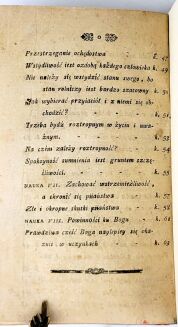 Przestrzeganie ochędostwa k. 45
Wstydliwość iest ozdobą każdego człowieka k. 49
Nie należy się wstydzić stanu swego, bo
stan rolniczy iest bardzo szacowny k.
Jak wybierać przyiaciół i z niemi się ob-
chodzić? k. 51.
Trzeba bydź roztropnym w życiu i uwa-
żnym. k.
Na czém zależy roztropność? k.
Spokoyność sumnienia iest gruntem szczę-
śliwości. k. 55
NAUKA VII. Zachować wstrzemięźliwość,
a chronić się piiaństwa k.
Złe i okropne skutki piiaństwa k. 59
NAUKA VIII. Powinności ku Bogu k. 62
Prawdziwa cześć Boga naylepiey się oka-
zuie w uczynkach k. 63